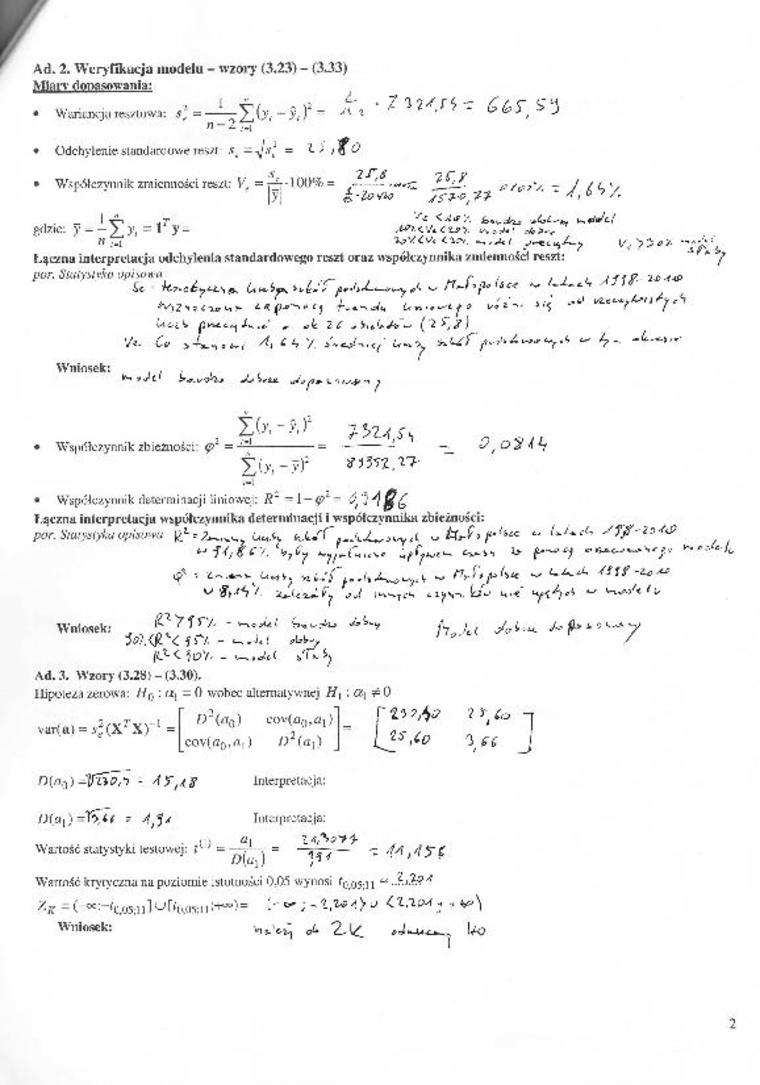 Ad. 2. Weryfikacja modelu – wzory (3.23) – (3.33)
Miary dopasowania:
• Wariancja resztowa: s_e^2 = 1/(n-2) Σ(y_i - ŷ_i)^2 = · 7321,54 = 665,59
• Odchylenie standardowe reszt: s_e = √s_e^2 = 25,80
• Współczynnik zmienności reszt: V_e = s_e/|ȳ| · 100% = 25,8 = 25,8/1570,77 · 100% = 1,64%
Ve < 10% bardzo dobry model
10% < Ve < 20% model dobry
gdzie: ȳ = 1/n Σ y_i = 1^T y =
20% < Ve < 30% model przeciętny Ve > 30% model słaby
Łączna interpretacja odchylenia standardowego reszt oraz współczynnika zmienności reszt:
por. Statystyka opisowa
Se - teoretyczna liczba szkół podstawowych w Małopolsce w latach 1998-2010
wyznaczona za pomocą trendu liniowego różni się od rzeczywistych
liczb przeciętnie o ok 26 (25,8)
Ve Co stanowi 1,64% średniej liczby szkół podstawowych w tym okresie
Wniosek: model bardzo dobrze dopasowany
• Współczynnik zbieżności: φ^2 = Σ(y_i - ŷ_i)^2 / Σ(y_i - ȳ)^2 = 7321,54 / 89352,27 = 0,0814
• Współczynnik determinacji liniowej: R^2 = 1 - φ^2 = 0,9186
Łączna interpretacja współczynnika determinacji i współczynnika zbieżności:
por. Statystyka opisowa R^2 = Zmienny liczby szkół podstawowych w Małopolsce w latach 1998-2010
w 91,86% były wyjaśnione wpływem czasu za pomocą modelu
φ^2 = zmiana liczby szkół podstawowych w Małopolsce w latach 1998-2010
w 8,14% zależały od innych czynników nie ujętych w modelu
R^2 > 95% - model bardzo dobry
Wniosek: 90% < R^2 < 95% - model dobry Model dobrze dopasowany
R^2 < 90% - model słaby
Ad. 3. Wzory (3.28) – (3.30).
Hipoteza zerowa: H_0 : α_1 = 0 wobec alternatywnej H_1 : α_1 ≠ 0
var(a) = s_e^2 (X^T X)^-1 = [ D^2(a_0) cov(a_0,a_1) ; cov(a_0,a_1) D^2(a_1) ] = [ 25,60 ; 25,60 3,66 ]
D(a_0) = = 15,18 Interpretacja:
D(a_1) = √3,66 = 1,91 Interpretacja:
Wartość statystyki testowej: t^(1) = a_1 / D(a_1) = 21,3077 / 1,91 = 11,156
Wartość krytyczna na poziomie istotności 0,05 wynosi t_0,05;11 = 2,201
Z_K = (-∞; -t_0,05;11] ∪ [t_0,05;11; +∞) = (-∞; -2,201> ∪ <2,201; +∞)
Wniosek: należy do ZK odrzucamy H0
2